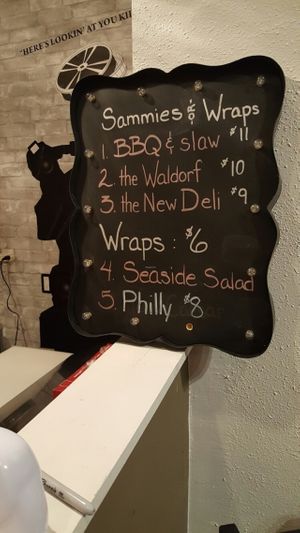 "HERE'S LOOKIN' AT YOU KI
Sammies & Wraps
1. BBQ & slaw $11
2. the Waldorf $10
3. the New Deli $9
Wraps: $6
4. Seaside Salad
5. Philly $8